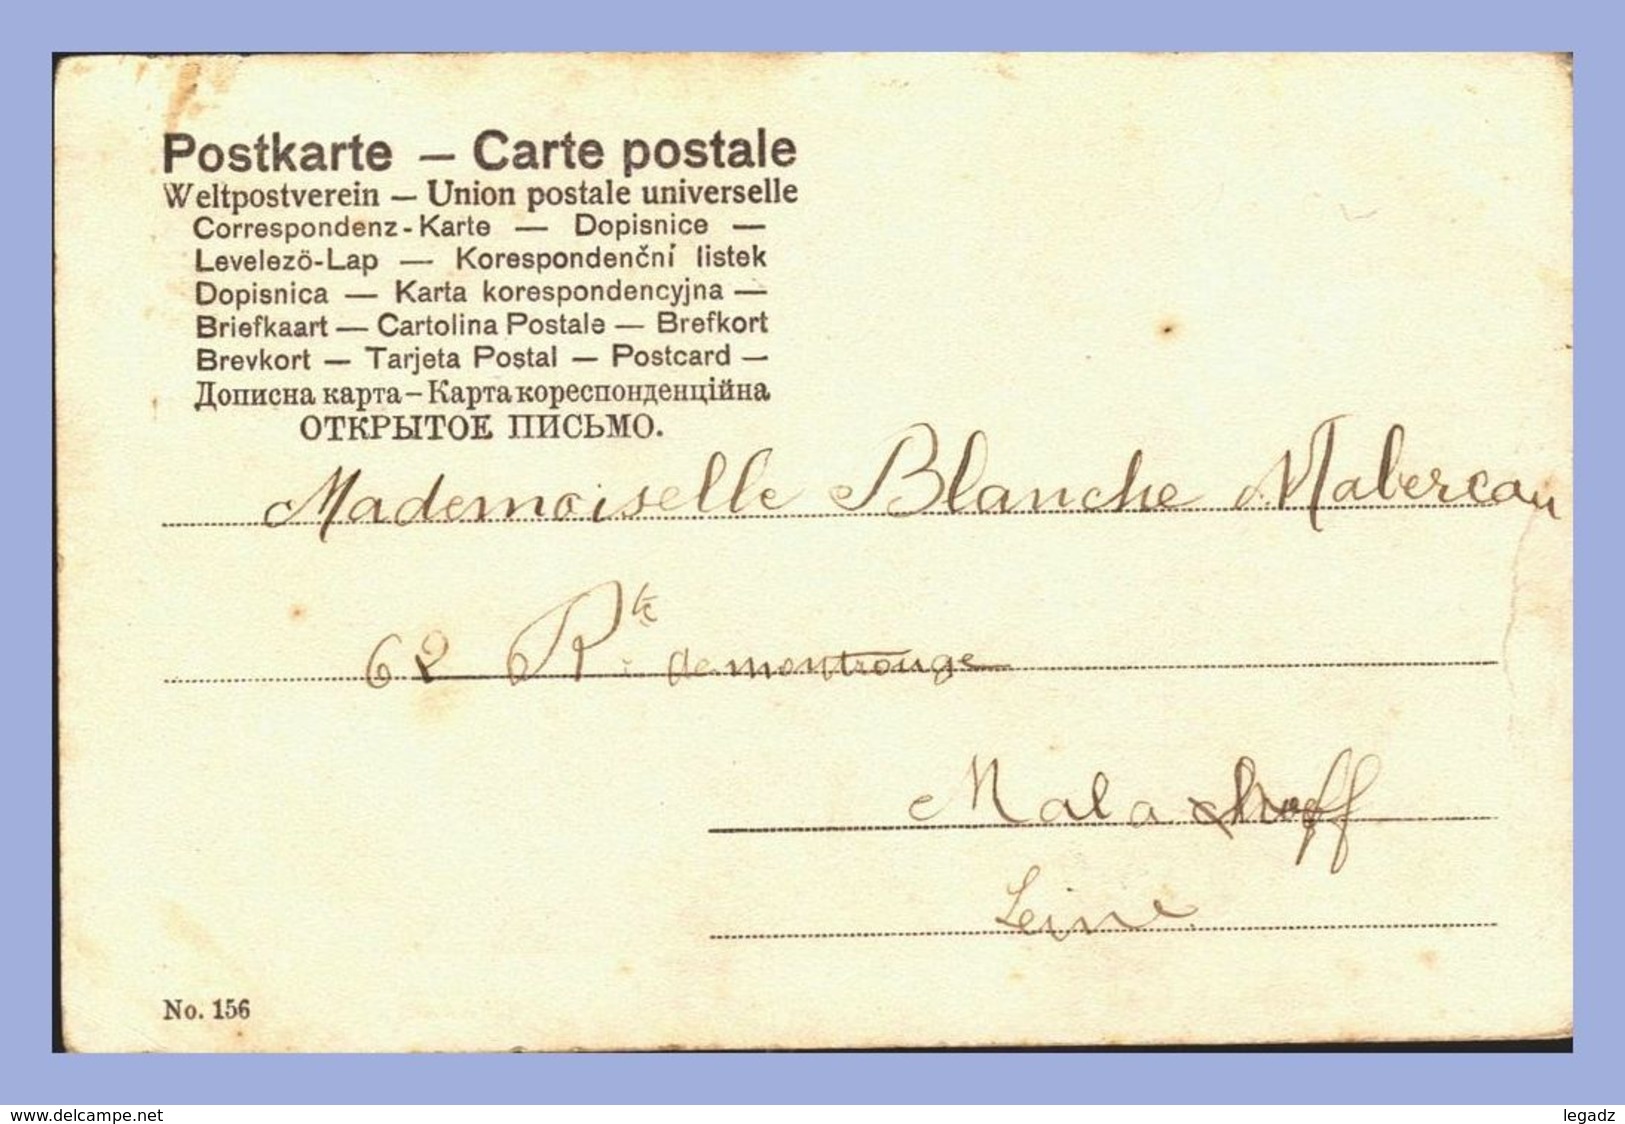 Postkarte — Carte postale
Weltpostverein — Union postale universelle
Correspondenz-Karte — Dopisnice —
Levelezö-Lap — Korespondenční listek
Dopisnica — Karta korespondencyjna —
Briefkaart — Cartolina Postale — Brefkort
Brevkort — Tarjeta Postal — Postcard —
Дописна карта – Карта кореспонденційна
ОТКРЫТОЕ ПИСЬМО.
Mademoiselle Blanche Mabereau
62 Rte de montrouge
Malakoff
Seine
No. 156
www.delcampe.net
legadz